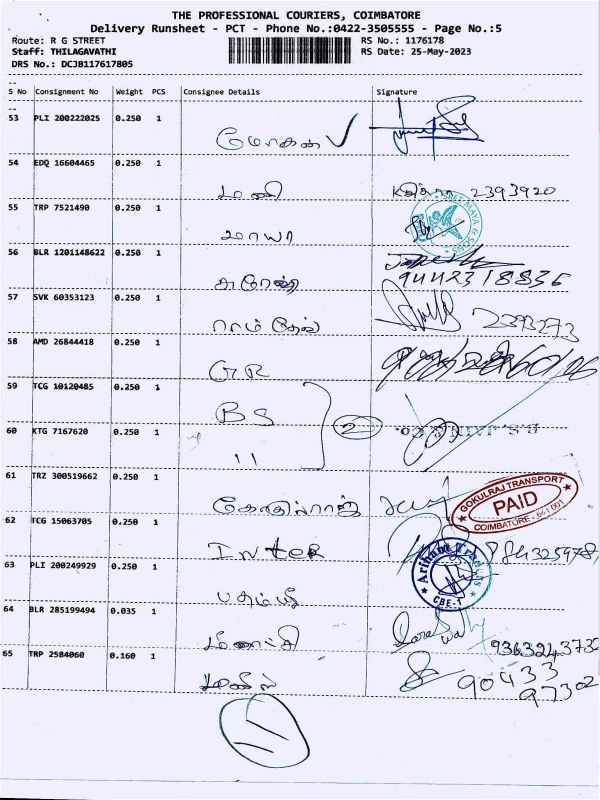 THE PROFESSIONAL COURIERS, COIMBATORE
Delivery Runsheet - PCT - Phone No.:0422-3505555 - Page No.:5
Route: R G STREET RS No.: 1176178
Staff: THILAGAVATHI RS Date: 25-May-2023
DRS No.: DCJB117617805
S No Consignment No Weight PCS Consignee Details Signature
53 PLI 200222025 0.250 1
மோகன்
54 EDQ 16604465 0.250 1
மணி 2393920
SREE MAYA & SONS
55 TRP 7521490 0.250 1
மாயா
56 BLR 1201148622 0.250 1
சுரேஷ் 9442318836
57 SVK 60353123 0.250 1
ராம் தேவ் 2393273
58 AMD 26844418 0.250 1
GR
59 TCG 10120485 0.250 1
BS 2
60 KTG 7167620 0.250 1
11
61 TRZ 300519662 0.250 1
GOKULRAJ TRANSPORT
PAID
COIMBATORE - 641 001
62 TCG 15063705 0.250 1
Inter
63 PLI 200249929 0.250 1
Arihant Traders
CBE-1
64 BLR 285199494 0.035 1
மீனாட்சி 9363243732
65 TRP 2584060 0.160 1
90433
97302